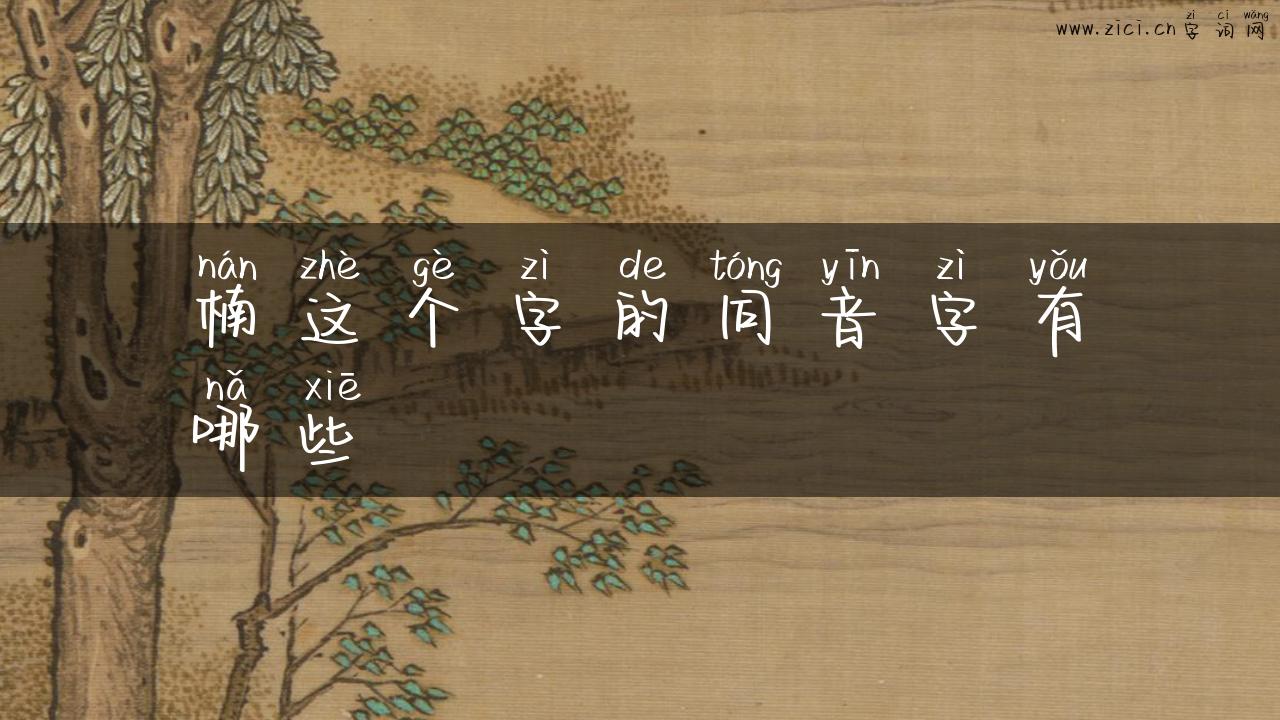 zì cí wǎng
www.zici.cn 字词网
nán zhè gè zì de tóng yīn zì yǒu
楠这个字的同音字有
nǎ xiē
哪些